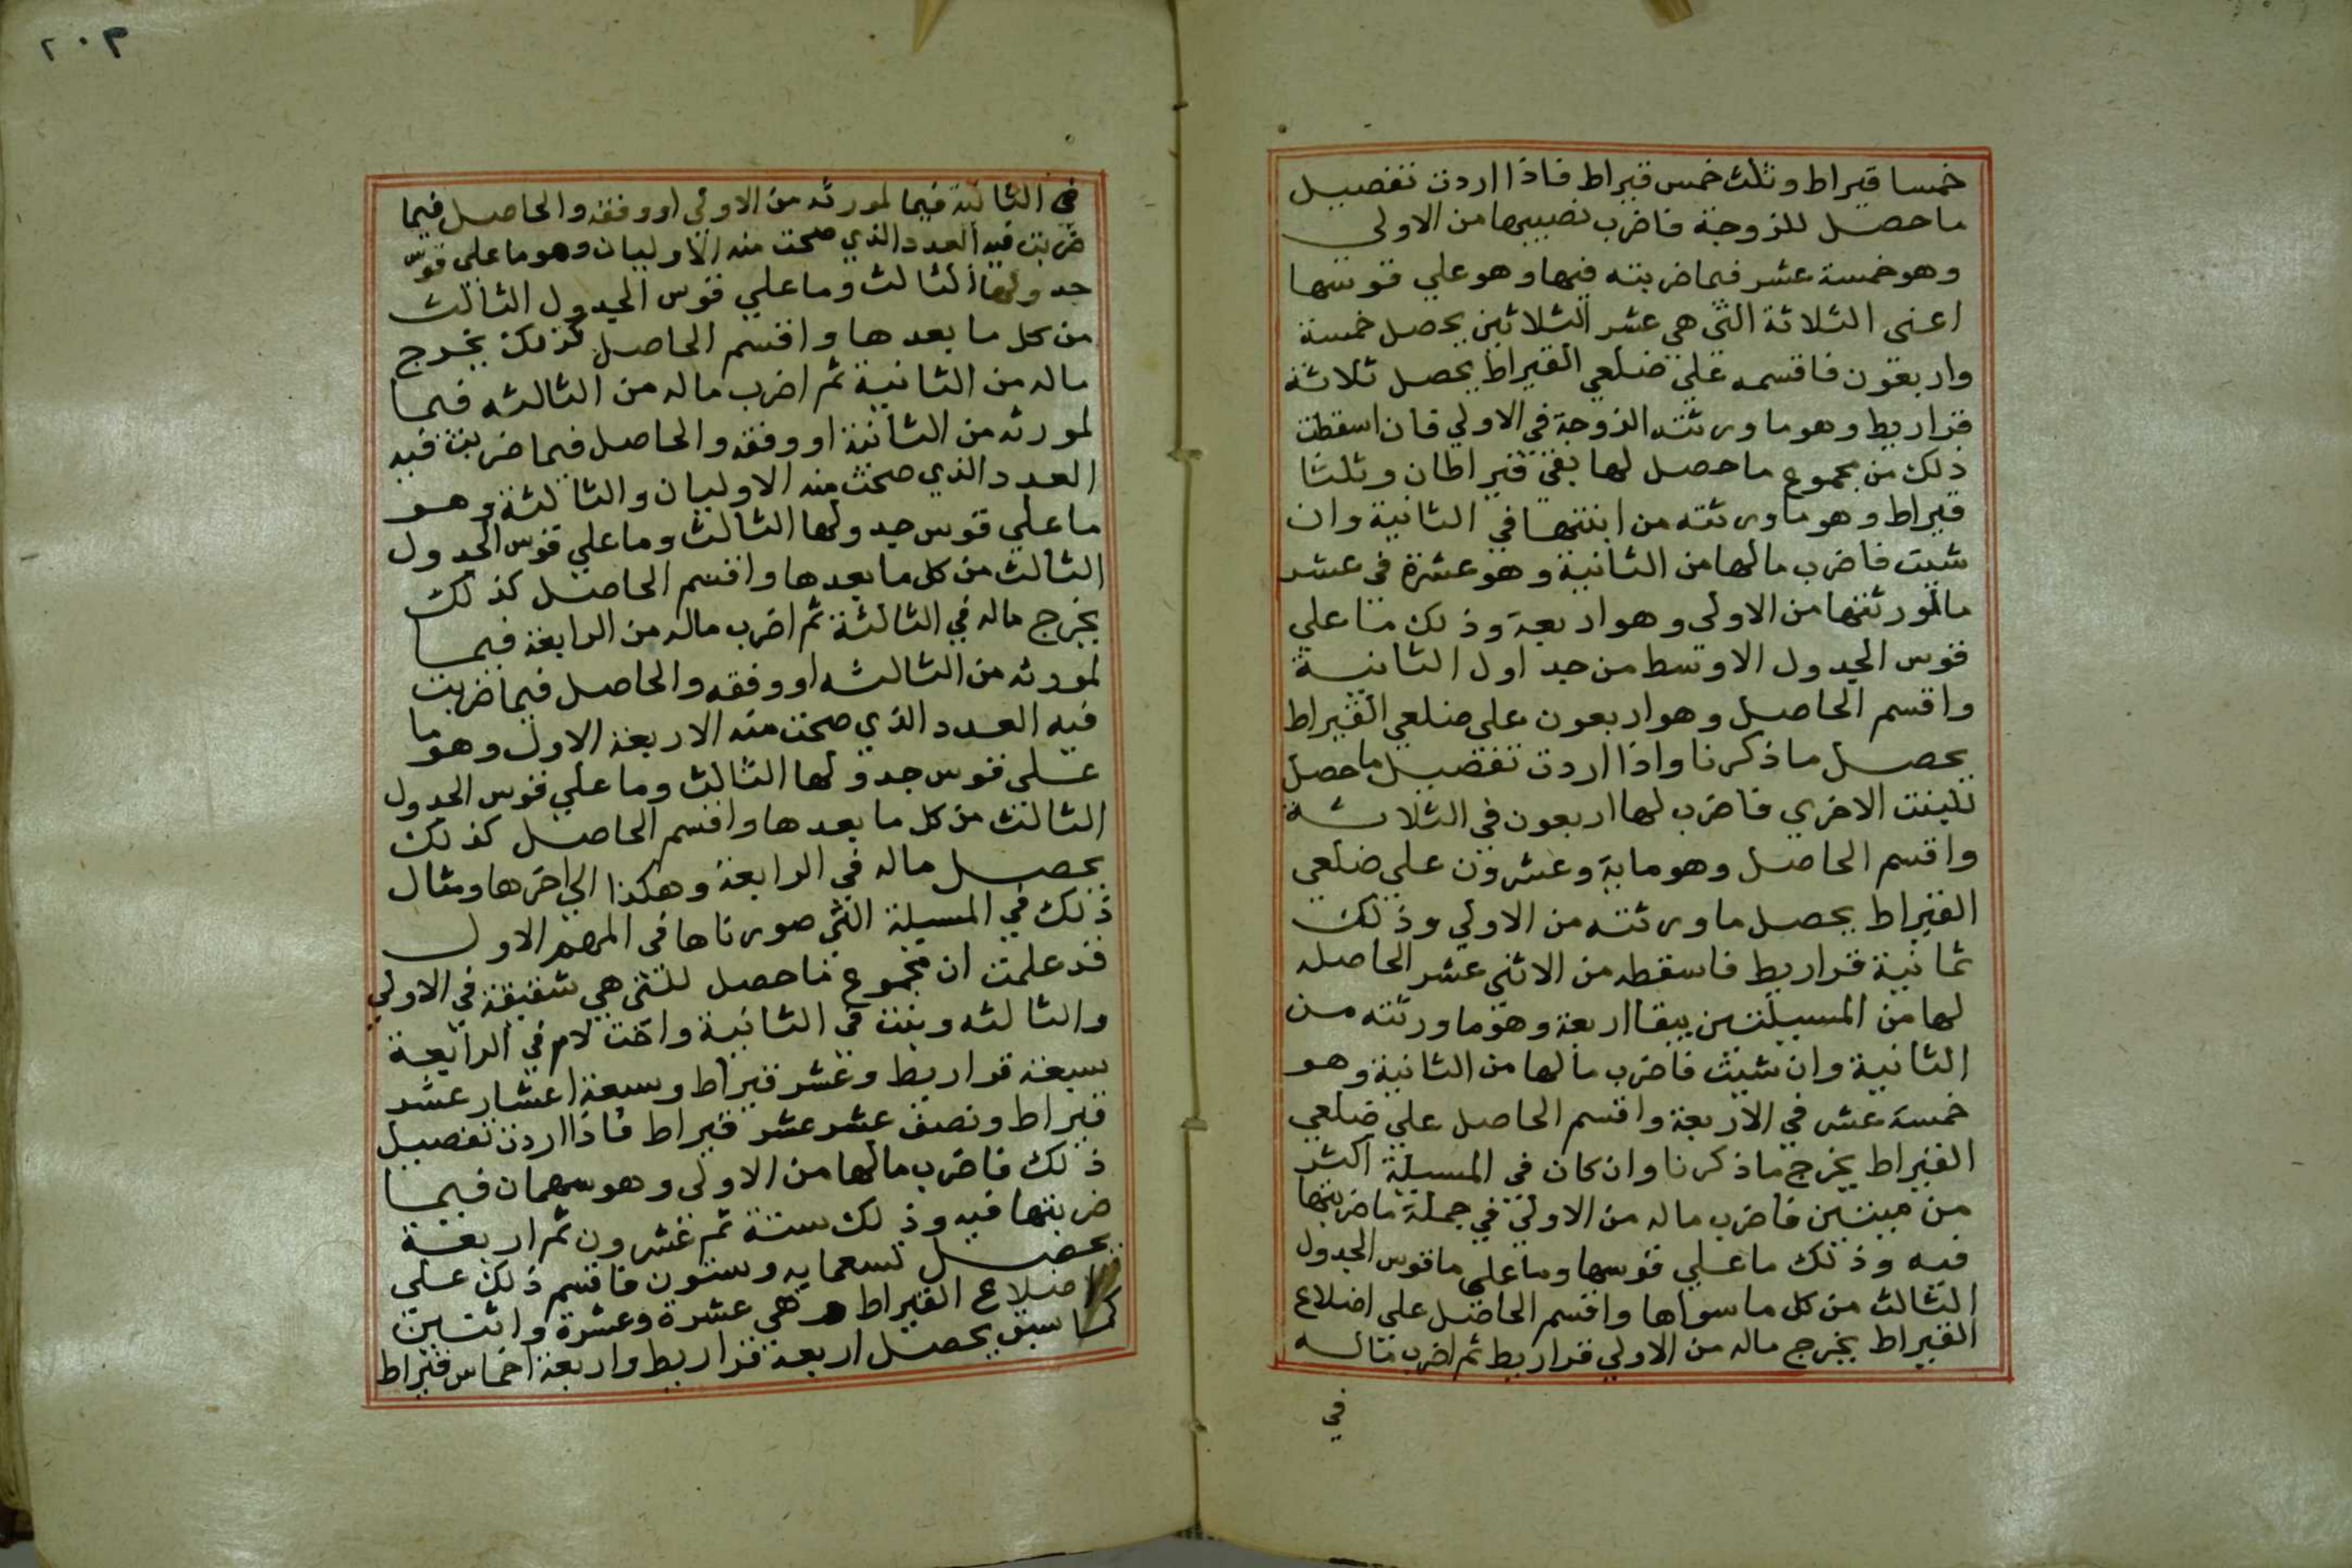 خمسا قيراط وثلث خمس قيراط فاذا اردت تفصيل
ما حصل للزوجة فاضرب نصيبها من الاولى
وهو خمسة عشر فيما ضربته فيها وهو علي قوسها
اعنى الثلاثة التى هى عشر الثلاثين يحصل خمسة
واربعون فاقسمه على ضلعي القيراط يحصل ثلاثة
قراريط وهو ما ورثته الزوجة في الاولي فان اسقطت
ذلك من مجموع ما حصل لها بقى قيراطان وثلثا
قيراط وهو ما ورثته من ابنتها في الثانية وان
شيت فاضرب مالها من الثانية وهو عشرة في عشر
ما لمورثتها من الاولى وهو اربعة وذلك ما على
قوس الجدول الاوسط من جداول الثانية
واقسم الحاصل وهو اربعون على ضلعى القيراط
يحصل ما ذكرنا واذا اردت تفصيل ما حصل
للبنت الاخري فاضرب لها اربعون في الثلاثة
واقسم الحاصل وهو ماية وعشرون على ضلعى
القيراط يحصل ما ورثته من الاولي وذلك
ثمانية قراريط فاسقطه من الاثنى عشر الحاصله
لها من المسيلتين يبقا اربعة وهو ما ورثته من
الثانية وان شيت فاضرب مالها من الثانية وهو
خمسة عشر في الاربعة واقسم الحاصل علي ضلعي
القيراط يخرج ما ذكرنا وان كان في المسيلة اكثر
من ميتين فاضرب ماله من الاولى في جملة ما ضربتها
فيه وذلك ما على قوسها وما على ما قوس الجدول
الثالث من كل ما سواها واقسم الحاصل على اضلاع
القيراط يخرج ماله من الاولي قراريط ثم اضرب ماله
في
٢٠٣
في الثانية فيما لمورثه من الاولي او وفقه والحاصل فيما
ضربت فيه العدد الذي صحت منه الاوليان وهو ما على قوس
جدولها الثالث وما علي قوس الجدول الثالث
من كل ما بعدها واقسم الحاصل كذلك يخرج
ماله من الثانية ثم اضرب ماله من الثالثه فيما
لمورثه من الثانية او وفقه والحاصل فيما ضربت فيه
العدد الذي صحت منه الاوليان والثالثة وهو
ما علي قوس جدولها الثالث وما علي قوس الجدول
الثالث من كل ما بعدها واقسم الحاصل كذلك
يخرج ماله في الثالثة ثم اضرب ماله من الرابعة فيما
لمورثه من الثالثه او وفقه والحاصل فيما ضربت
فيه العدد الذي صحت منه الاربعة الاول وهو ما
على قوس جدولها الثالث وما علي قوس الجدول
الثالث من كل ما بعدها واقسم الحاصل كذلك
يحصل ماله في الرابعة وهكذا الي اخرها ومثال
ذلك في المسيلة التي صورناها في المهم الاول
قد علمت ان مجموع ما حصل للتى هي شقيقة في الاولي
والثالثه وبنت في الثانية واخت لام في الرابعة
سبعة قراريط وعشر قيراط وسبعة اعشار عشر
قيراط ونصف عشر عشر قيراط فاذا اردت تفصيل
ذلك فاضرب مالها من الاولى وهو سهمان فيما
ضربتها فيه وذلك ستة ثم عشرون ثم اربعة
يحصل تسعمايه وستون فاقسم ذلك على
اضلاع القيراط وهي عشرة وعشرة واثنين
كما سبق يحصل اربعة قراريط واربعة اخماس قيراط